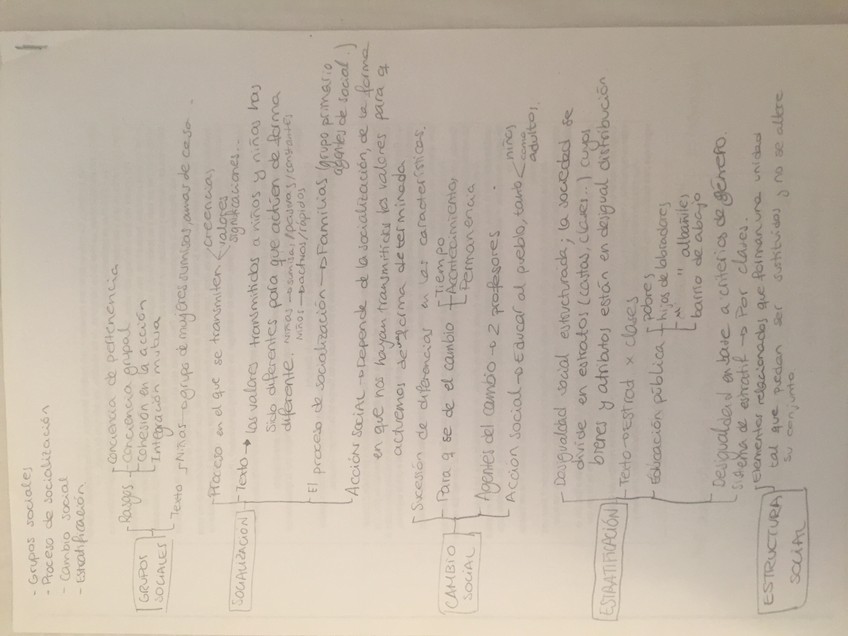 - Grupos sociales
- Proceso de socialización
- Cambio social
- Estratificación
GRUPOS SOCIALES
Rasgos
Conciencia de pertenencia
Conciencia grupal
Cohesión en la acción
Integración mutua
Texto
Niñas → grupo de mujeres sumisas, amas de casa.
SOCIALIZACIÓN
Proceso en el que se transmiten
creencias
valores
significaciones...
Texto → Los valores transmitidos a niños y niñas has
sido diferentes para que actúen de forma
diferente. Niñas → sumisas/pasivas/constantes
Niños → activos/rápidos
El proceso de socialización → Familias (grupo primario
agentes de social.)
Acción social → Depende de la socialización, de la forma
en que nos hayan transmitido los valores para q
actuemos de forma determinada
CAMBIO SOCIAL
Sucesión de diferencias en las características.
Para q se de el cambio
Tiempo
Acontecimientos
Permanencia
Agentes del cambio → 2 profesores.
Acción social → Educar al pueblo, tanto
niños
como
adultos.
ESTRATIFICACIÓN
Desigualdad social estructurada; la sociedad se
divide en estratos (castas, clases...) cuyos
bienes y atributos están en desigual distribución
Texto → Estrat x clases
Educación pública
pobres
hijos de labradores
" " albañiles
barrio de abajo
Desigualdad en base a criterios de género.
Sistema de estratif → Por clases.
ESTRUCTURA SOCIAL
Elementos relacionados que forman una unidad
tal que puedan ser sustituidos y no se altere
su conjunto